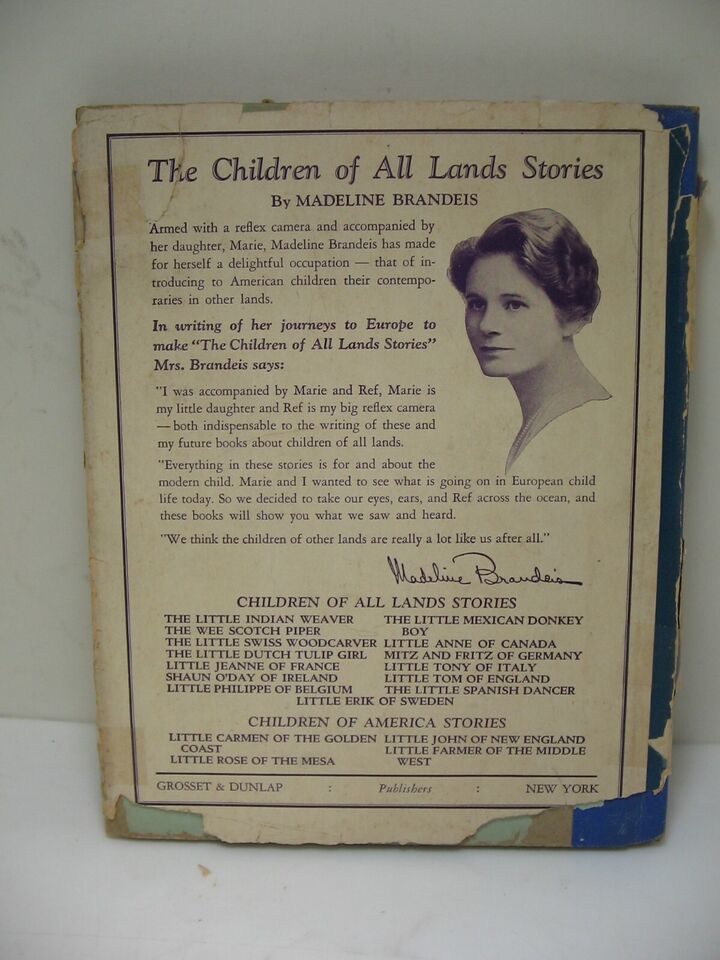 The Children of All Lands Stories
By MADELINE BRANDEIS
Armed with a reflex camera and accompanied by
her daughter, Marie, Madeline Brandeis has made
for herself a delightful occupation — that of in-
troducing to American children their contempo-
raries in other lands.
In writing of her journeys to Europe to
make "The Children of All Lands Stories"
Mrs. Brandeis says:
"I was accompanied by Marie and Ref, Marie is
my little daughter and Ref is my big reflex camera
— both indispensable to the writing of these and
my future books about children of all lands.
"Everything in these stories is for and about the
modern child. Marie and I wanted to see what is going on in European child
life today. So we decided to take our eyes, ears, and Ref across the ocean, and
these books will show you what we saw and heard.
"We think the children of other lands are really a lot like us after all."
Madeline Brandeis
CHILDREN OF ALL LANDS STORIES
THE LITTLE INDIAN WEAVER
THE WEE SCOTCH PIPER
THE LITTLE SWISS WOODCARVER
THE LITTLE DUTCH TULIP GIRL
LITTLE JEANNE OF FRANCE
SHAUN O'DAY OF IRELAND
LITTLE PHILIPPE OF BELGIUM
THE LITTLE MEXICAN DONKEY
BOY
LITTLE ANNE OF CANADA
MITZ AND FRITZ OF GERMANY
LITTLE TONY OF ITALY
LITTLE TOM OF ENGLAND
THE LITTLE SPANISH DANCER
LITTLE ERIK OF SWEDEN
CHILDREN OF AMERICA STORIES
LITTLE CARMEN OF THE GOLDEN
COAST
LITTLE ROSE OF THE MESA
LITTLE JOHN OF NEW ENGLAND
LITTLE FARMER OF THE MIDDLE
WEST
GROSSET & DUNLAP : Publishers : NEW YORK